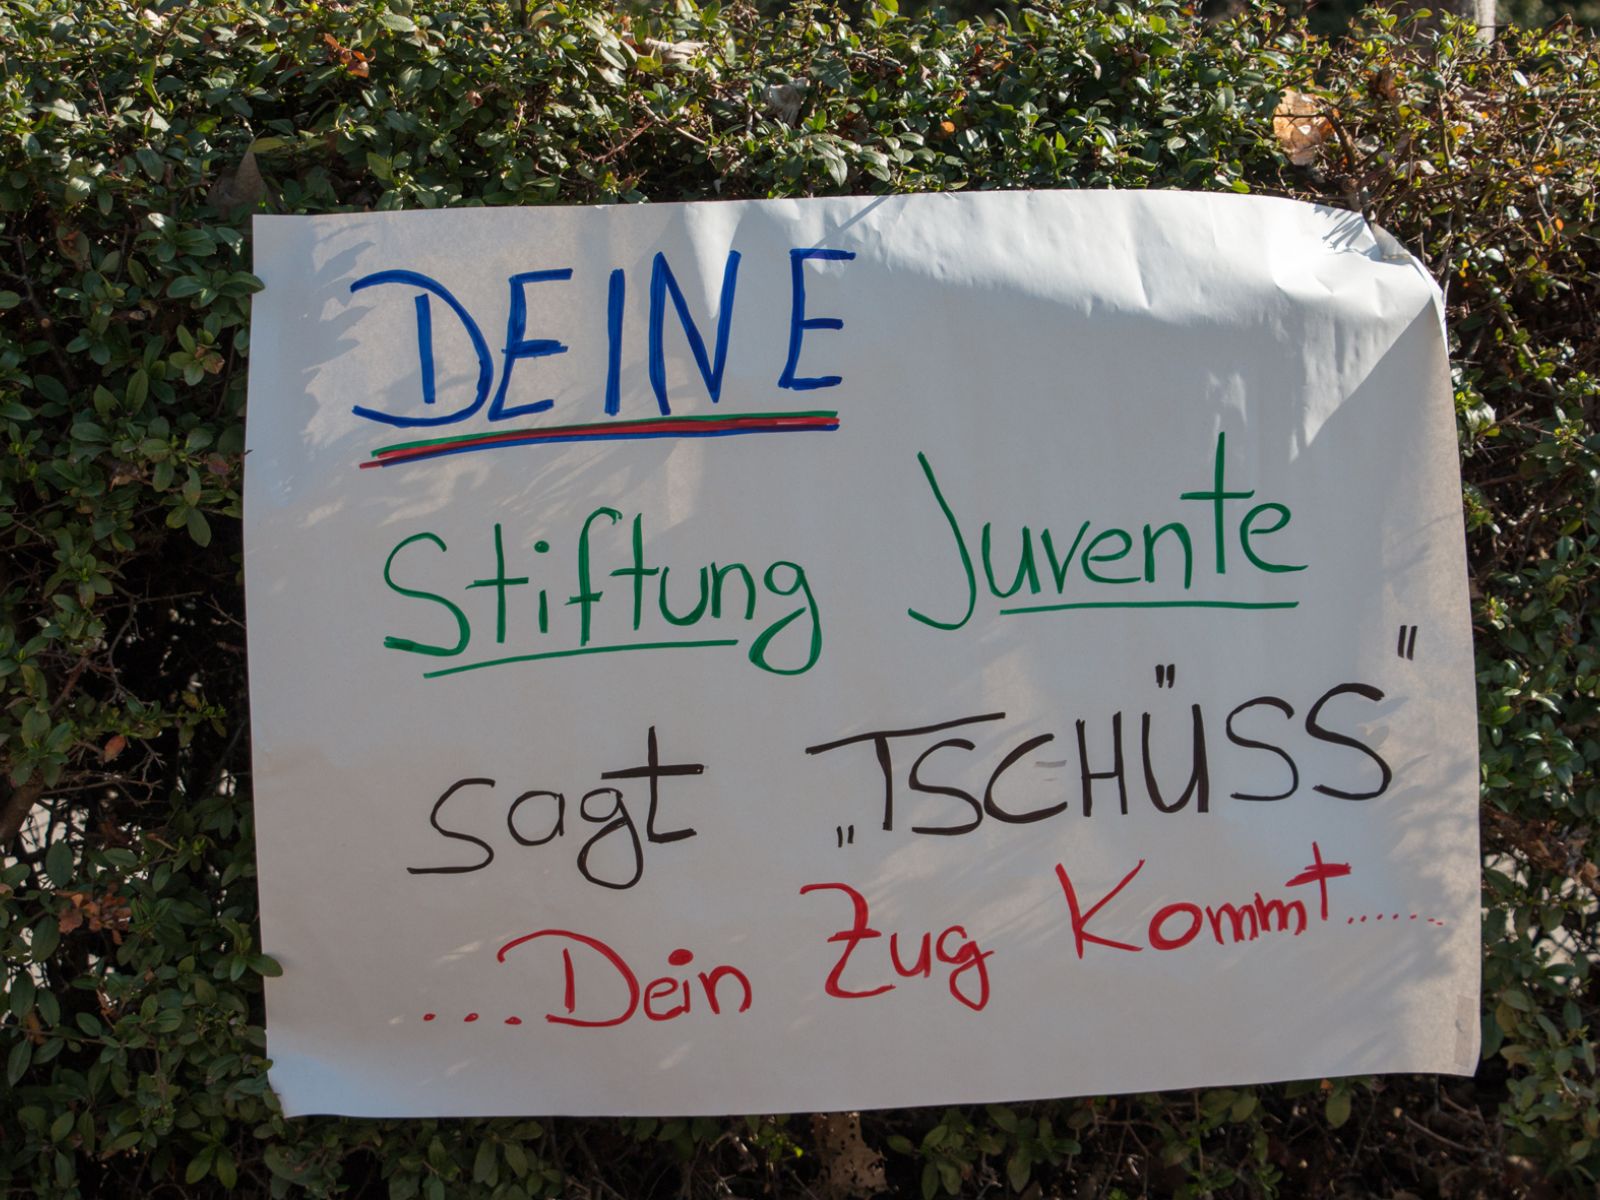 DEINE
Stiftung Juvente
sagt „TSCHÜSS"
...Dein Zug Kommt.......